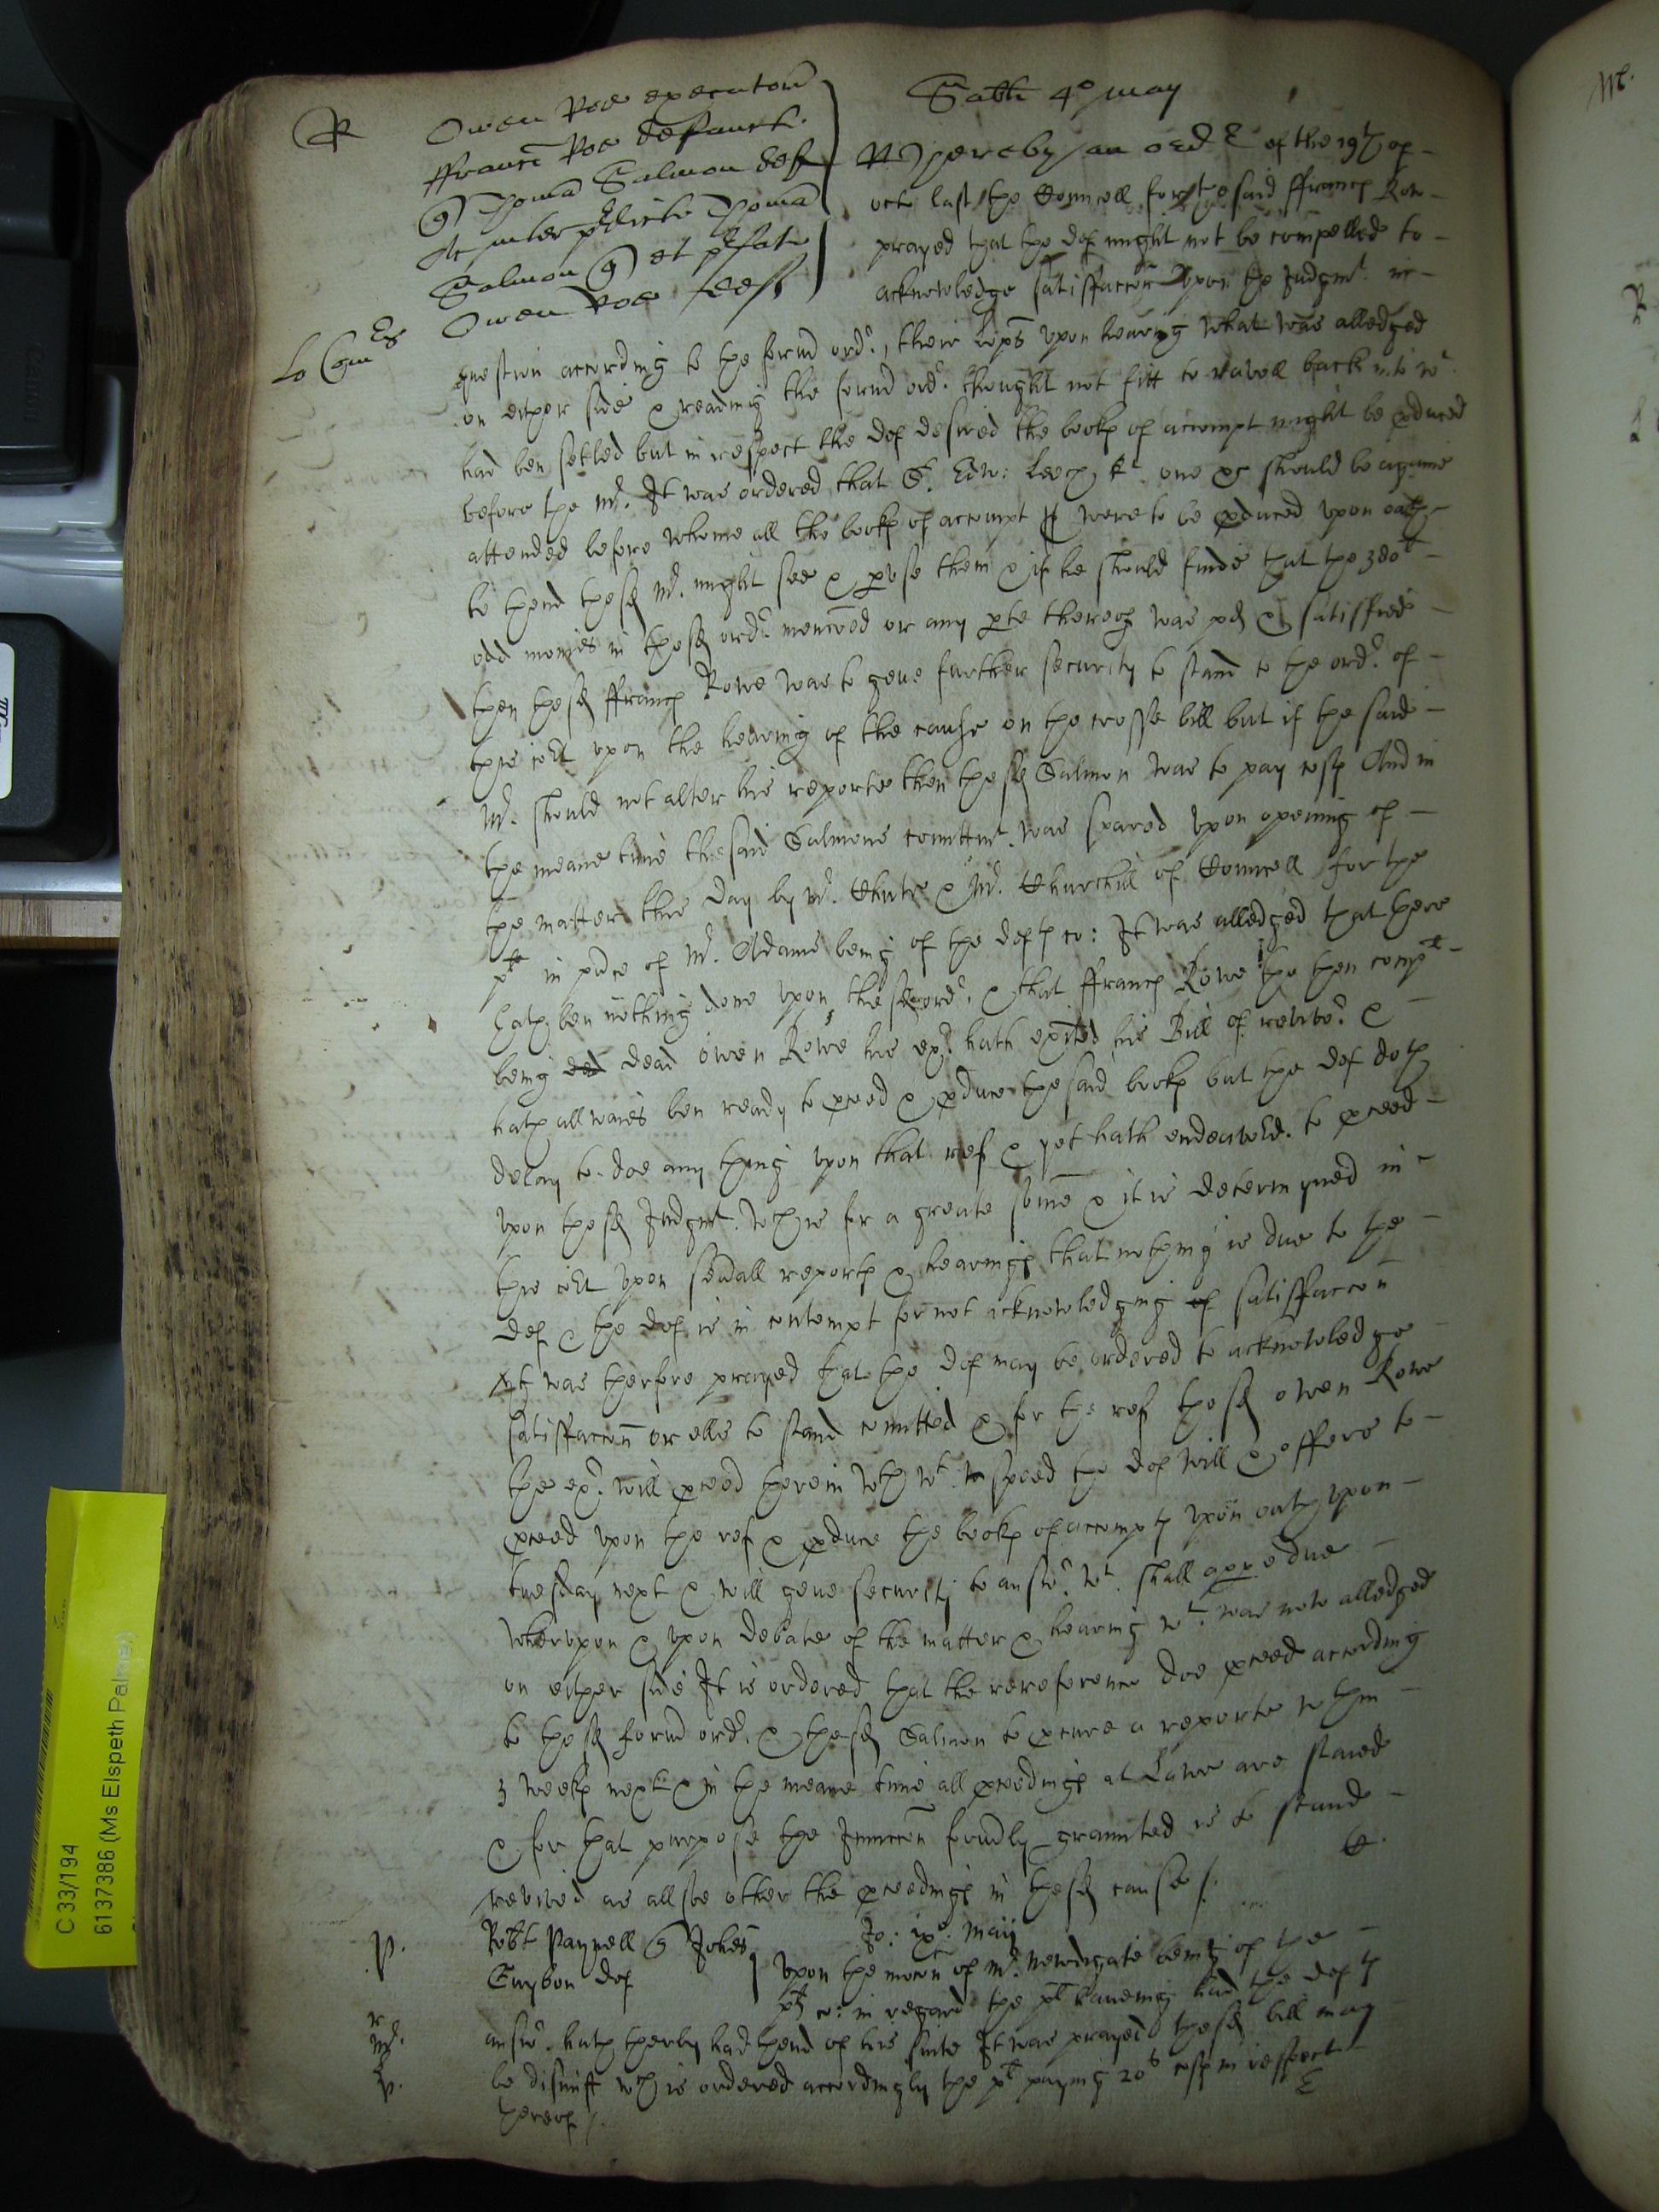 Sabti 4º May
R Owen Roe executor
ffranc Roe defuncti
q Thoma Salmon def
et inter Thoma
Salmon q et
Owen Roe def
Whereby an ordr of the 19th of
octo last the Councell for the said ffranc Rowe
prayed that the def might not be compelled to
acknowledge satisfaccon upon the Judgmt in
question according to the formd ordr, their Lopps upon hearing what was alledged
on either side & reading the formd ordr thought not fitt to ravell back into wt
had ben setled but in respect the def desired the books of accompt might be produced
before the Mr. It was ordered that Sr. Edw: Leech kt. one &c should be againe
attended before whome all the books of accompt were to be produced upon oath
to thend the sd Mr. might see & peruse them & if he should finde that the 380l
odd monies in the sd ordr mencoed or any pte thereof was pd & satisfied
then the sd ffranc Rowe was to geve further security to stand to the ordr of
this cort upon the hearing of the cause on the crosse bill but if the said
Mr. should not alter his reporte then the sd Salmon was to pay costs And in
the meane time the said Salmons comittmt. was spared Upon opening of
the matter this day by Mr. Chute & Mr. Churchill of Councell for the
plt in pnce of Mr. Adams being of the defts co: It was alledged that there
hath ben nothing done upon the sd ordr. & that ffranc Rowe the then complt
being ded dead Owen Rowe his exr hath exited his Bill of revivor &
hath allwaies ben ready to proceed & produce the said books but the def doth
delay to doe any thing upon that ref & yet hath endeavord. to proceed
upon the sd Judgmt. wch is for a greate some & it is determyned in
this cort upon sevall reports & hearings that nothing is due to the
def & the def is in contempt for not acknowledging of satisfaccon
It was therfore prayed that the def may be ordered to acknowledge
satisfaccon or else to stand comitted & for the ref the sd Owen Rowe
the exr. will proceed therein wth wt speed the def will & offers to
proceed upon the ref & produce the books of accompts upon oath upon
tuesday next & will geve security to answr. wt. shall appe due
Wherupon & upon debate of the matter & hearing wt. was now alledged
on either side It is ordered that the rereference doe proceed according
to the sd formd ordr. & the sd Salmon to procure a reporte within
3 weeks next & in the meane time all proceedings at Lawe are staied
& for that purpose the Inuccon formdly graunted is to stand
revived as allsoe other the proceedings in the sd cause /.
P. Robt Paynell q Johes
Guybon def
Jo: ixº. Maij
Upon the mocon of Mr. Newdigate being of the
plts co: in regard the plt haveing had the defts
answr. hath therby had thend of his suite It was prayed the sd bill may
be dismist wch is ordered accordingly the plt paying 20s costs in respect
thereof /.
C 33/194
6137386 (Ms Elspeth Palmer)